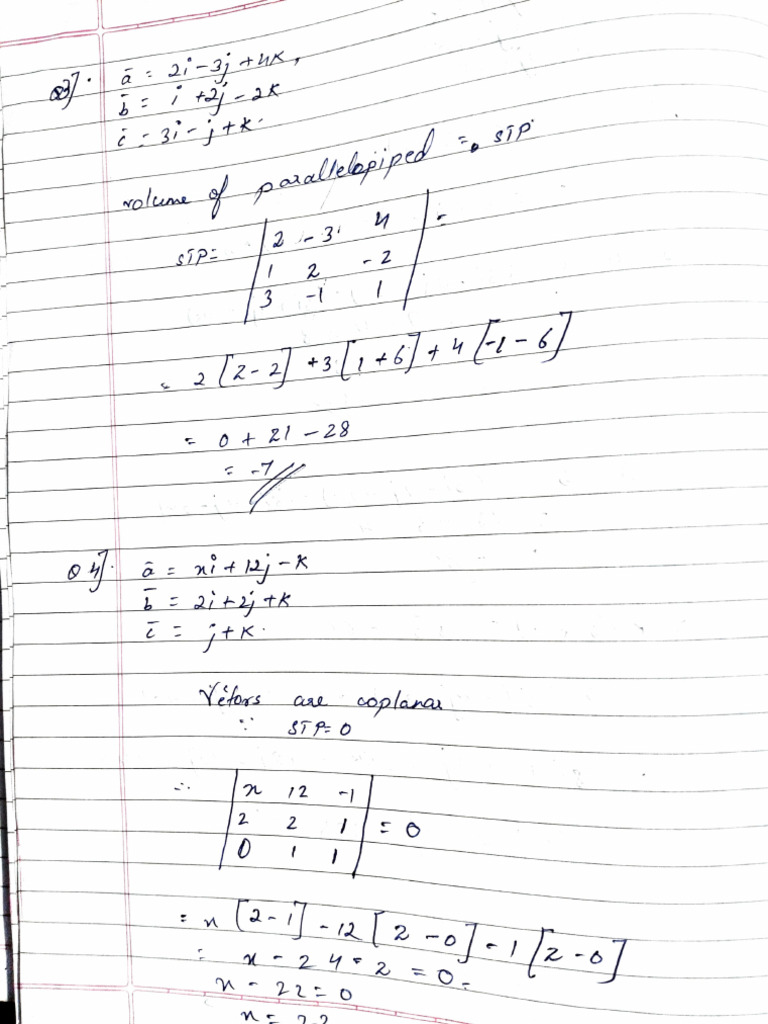 Q3]. ā = 2i - 3j + 4k,
b̄ = i + 2j - 2k
c̄ = 3i - j + k.
volume of parallelopiped = STP.
STP = | 2 -3 4 | =
| 1 2 -2 |
| 3 -1 1 |
= 2[2-2] + 3[1+6] + 4[-1-6]
= 0 + 21 - 28
= -7 //
Q4]. ā = xi + 12j - k
b̄ = 2i + 2j + k
c̄ = j + k.
Vetors are coplanar
∵ STP = 0
∴ | x 12 -1 |
| 2 2 1 | = 0
| 0 1 1 |
= x[2-1] - 12[2-0] - 1[2-0]
= x - 24 - 2 = 0
x - 22 = 0
x = 22